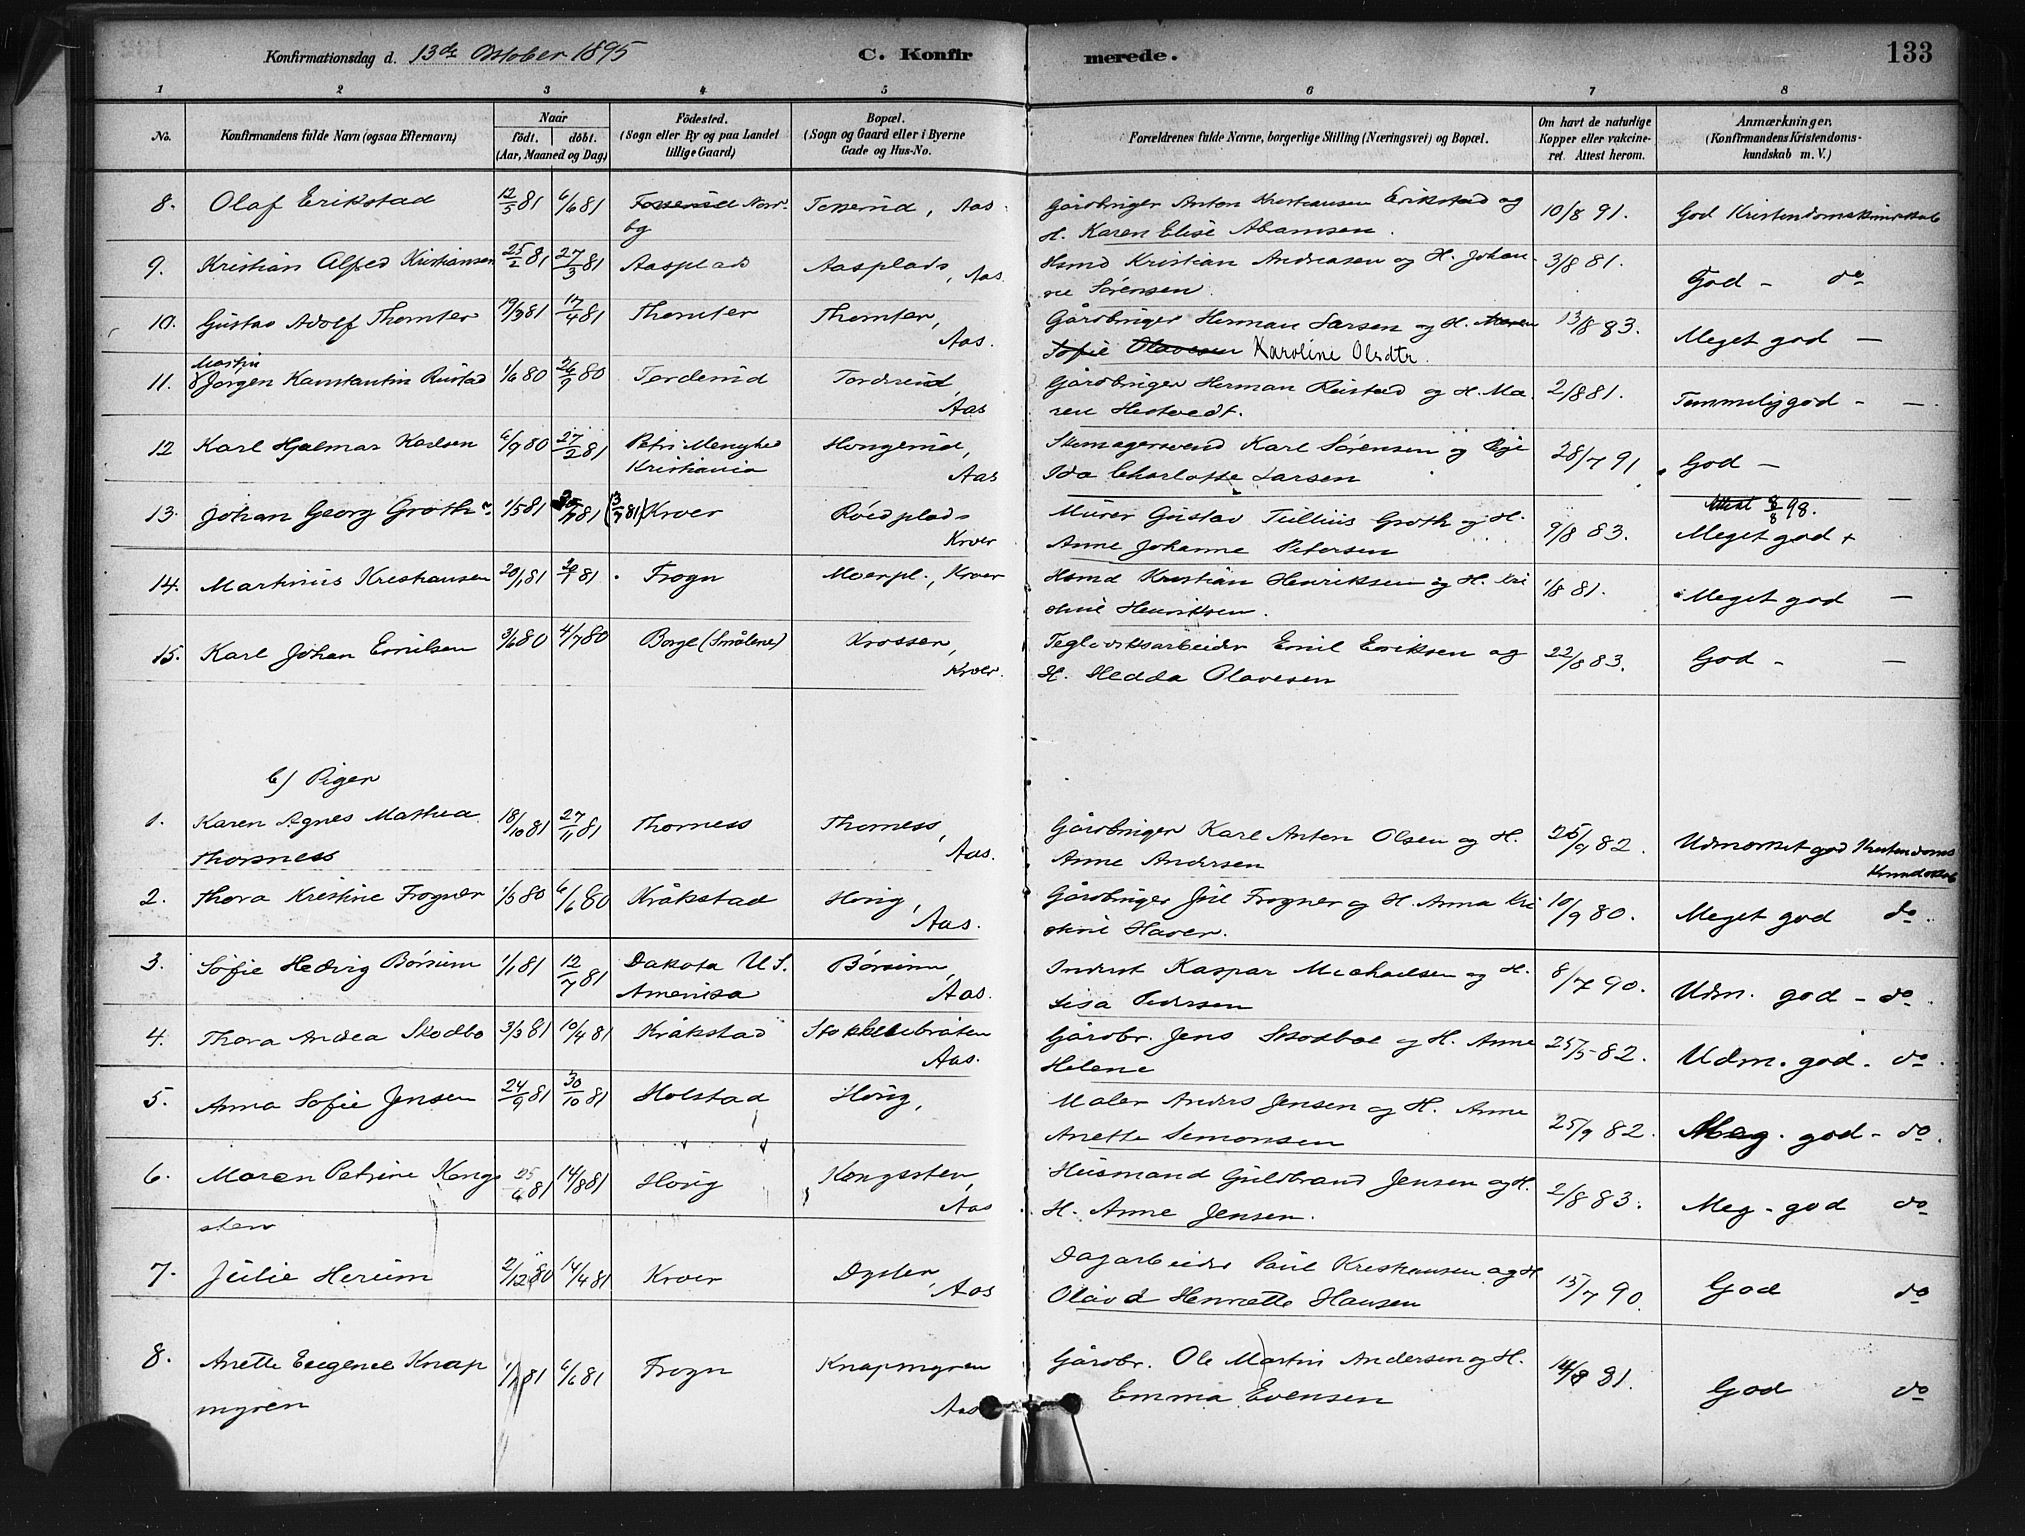 Konfirmationsdag d. 13de Oktober 1895 C. Konfirmerede. 133
1 2 3 4 5 6 7 8
No. Konfirmandens fulde Navn (ogsaa Efternavn) Naar födt. döbt. (Aar, Maaned og Dag) Födested. (Sogn eller By og paa Landet tillige Gaard) Bopæl. (Sogn og Gaard eller i Byerne Gade og Hus-No. Forældrenes fulde Navne, borgerlige Stilling (Næringsvei) og Bopæl. Om havt de naturlige Kopper eller vakcineret. Attest herom. Anmærkninger. (Konfirmandens Kristendomskundskab m. V.)
8. Olaf Erikstad 12/5 81 6/6 81 Nordby Tosserud, Aas. Gårdbruger Anton Kristiansen Erikstad og H. Karen Elise Abamsen. 10/8 91. God Kristendomskundskab
9. Kristian Alfred Kristiansen 25/2 81 27/3 81 Aasplads Aasplads, Aas. Hsmd Kristian Andreasen og H. Johanne Sørensen. 3/8 81. God - do
10. Gustav Adolf Thomter 19/3 81 17/4 81 Thomter Thomter, Aas. Gårdbruger Herman Larsen og H. Maren Sofie Olavesen Karoline Olsdtr. 13/8 83. Meget god —
11. Martin Jørgen Konstantin Rustad 1/6 80 26/9 80 Torderud Torderud, Aas Gårdbruger Herman Rustad og H. Maren Hestvedt. 2/8 81. Temmelig god - —
12 Karl Hjalmar Karlsen 6/9 80 27/2 81 Petri Menighed Kristiania Hongerud, Aas Karl Sørensen og Pige Ida Charlotte Larsen 28/7 91. God —
13. Johan Georg Groth 1/5 81 81 (13/7 81) Kroer Røedplads Kroer Murer Gustav Tullius Groth og H. Anne Johanne Petersen 9/8 83. Attest 8/8 98. Meget god +
14. Martinius Kristiansen 20/1 81 81. Frogn Moerpl., Kroer Hsmd Kristian Henriksen og H. Kristine Henriksen. 1/8 81. Meget god —
15. Karl Johan Emilsen 3/6 80 4/7 80 Borge (Smålene) Krossen, Kroer. Teglverksarbeider Emil Eriksen og H. Hedda Olavesen 22/8 83. God - —
b) Piger
1. Karen Agnes Mathea Thorsness 18/10 81 27/11 81 Thorness Thorness, Aas. Gårdbruger Karl Anton Olsen og H. Anne Andersen 25/9 82. Udmærket god Kristendomskundskab
2. Thora Kristine Frogner 1/3 80 6/6 80 Kråkstad Horig, Aas. Gårdbruger Juel Frogner og H. Anna Kristine Haver. 10/9 80. Meget god do.
3. Sofie Hedvig Børsum 1/1 81 12/7 81 Dakota U S. Amerika Børsum, Aas. Inderst Kaspar Michaelsen og H. Lisa Pedersen 8/7 90. Udm. god - do
4. Thora Andea Skodbo 3/3 81 10/4 81 Kråkstad Stokkebråten Aas. Gårdbr. Jens Skodboe og H. Anne Helene 25/5 82. Udm. god. do.
5. Anna Sofie Jensen 24/9 81 30/10 81 Holstad Horig, Maler Anders Jensen og H. Anne Anette Semonsen 25/9 82. Meg. god - do.
6. Maren Petrine Kongsten 25/6 81 14/8 81 Horig Kongssten, Aas Husmand Guldbrand Jensen og H. H. Anne Jensen. 2/8 83. Meg. god do
7. Julie Herum 2/12 80 14/4 81 Kroer Dyster, Aas Dagarbeider Paul Kristiansen og H Olava Henriette Hansen 15/7 90. God do
8. Anette Eugenie Knapmyren 1/1 81 6/6 81 Frogn Knapmyren Aas Gårdbr. Ole Martin Andersen og H. Emma Evensen 14/8 81. God do